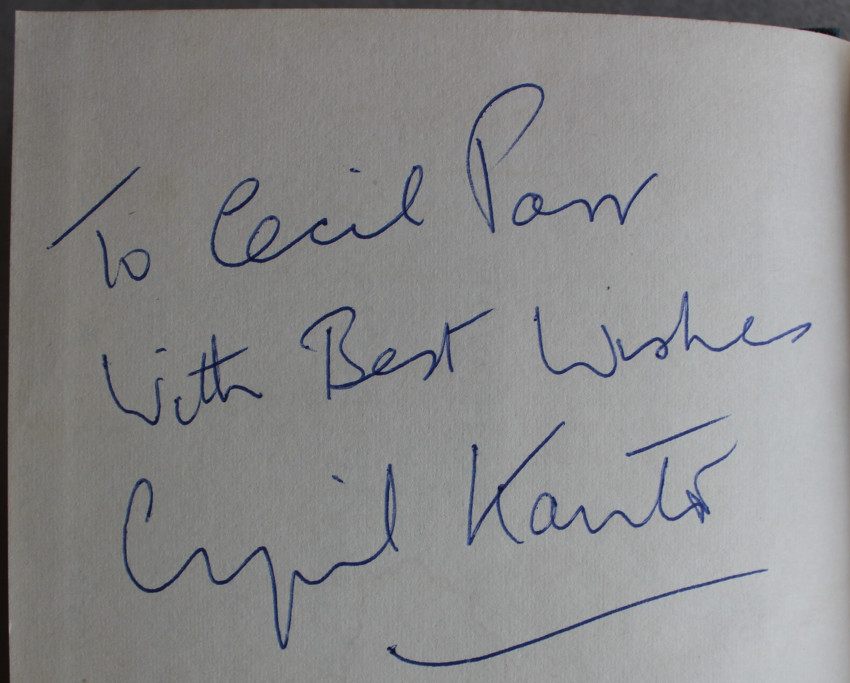 To Cecil Parr
With Best Wishes
Cyril